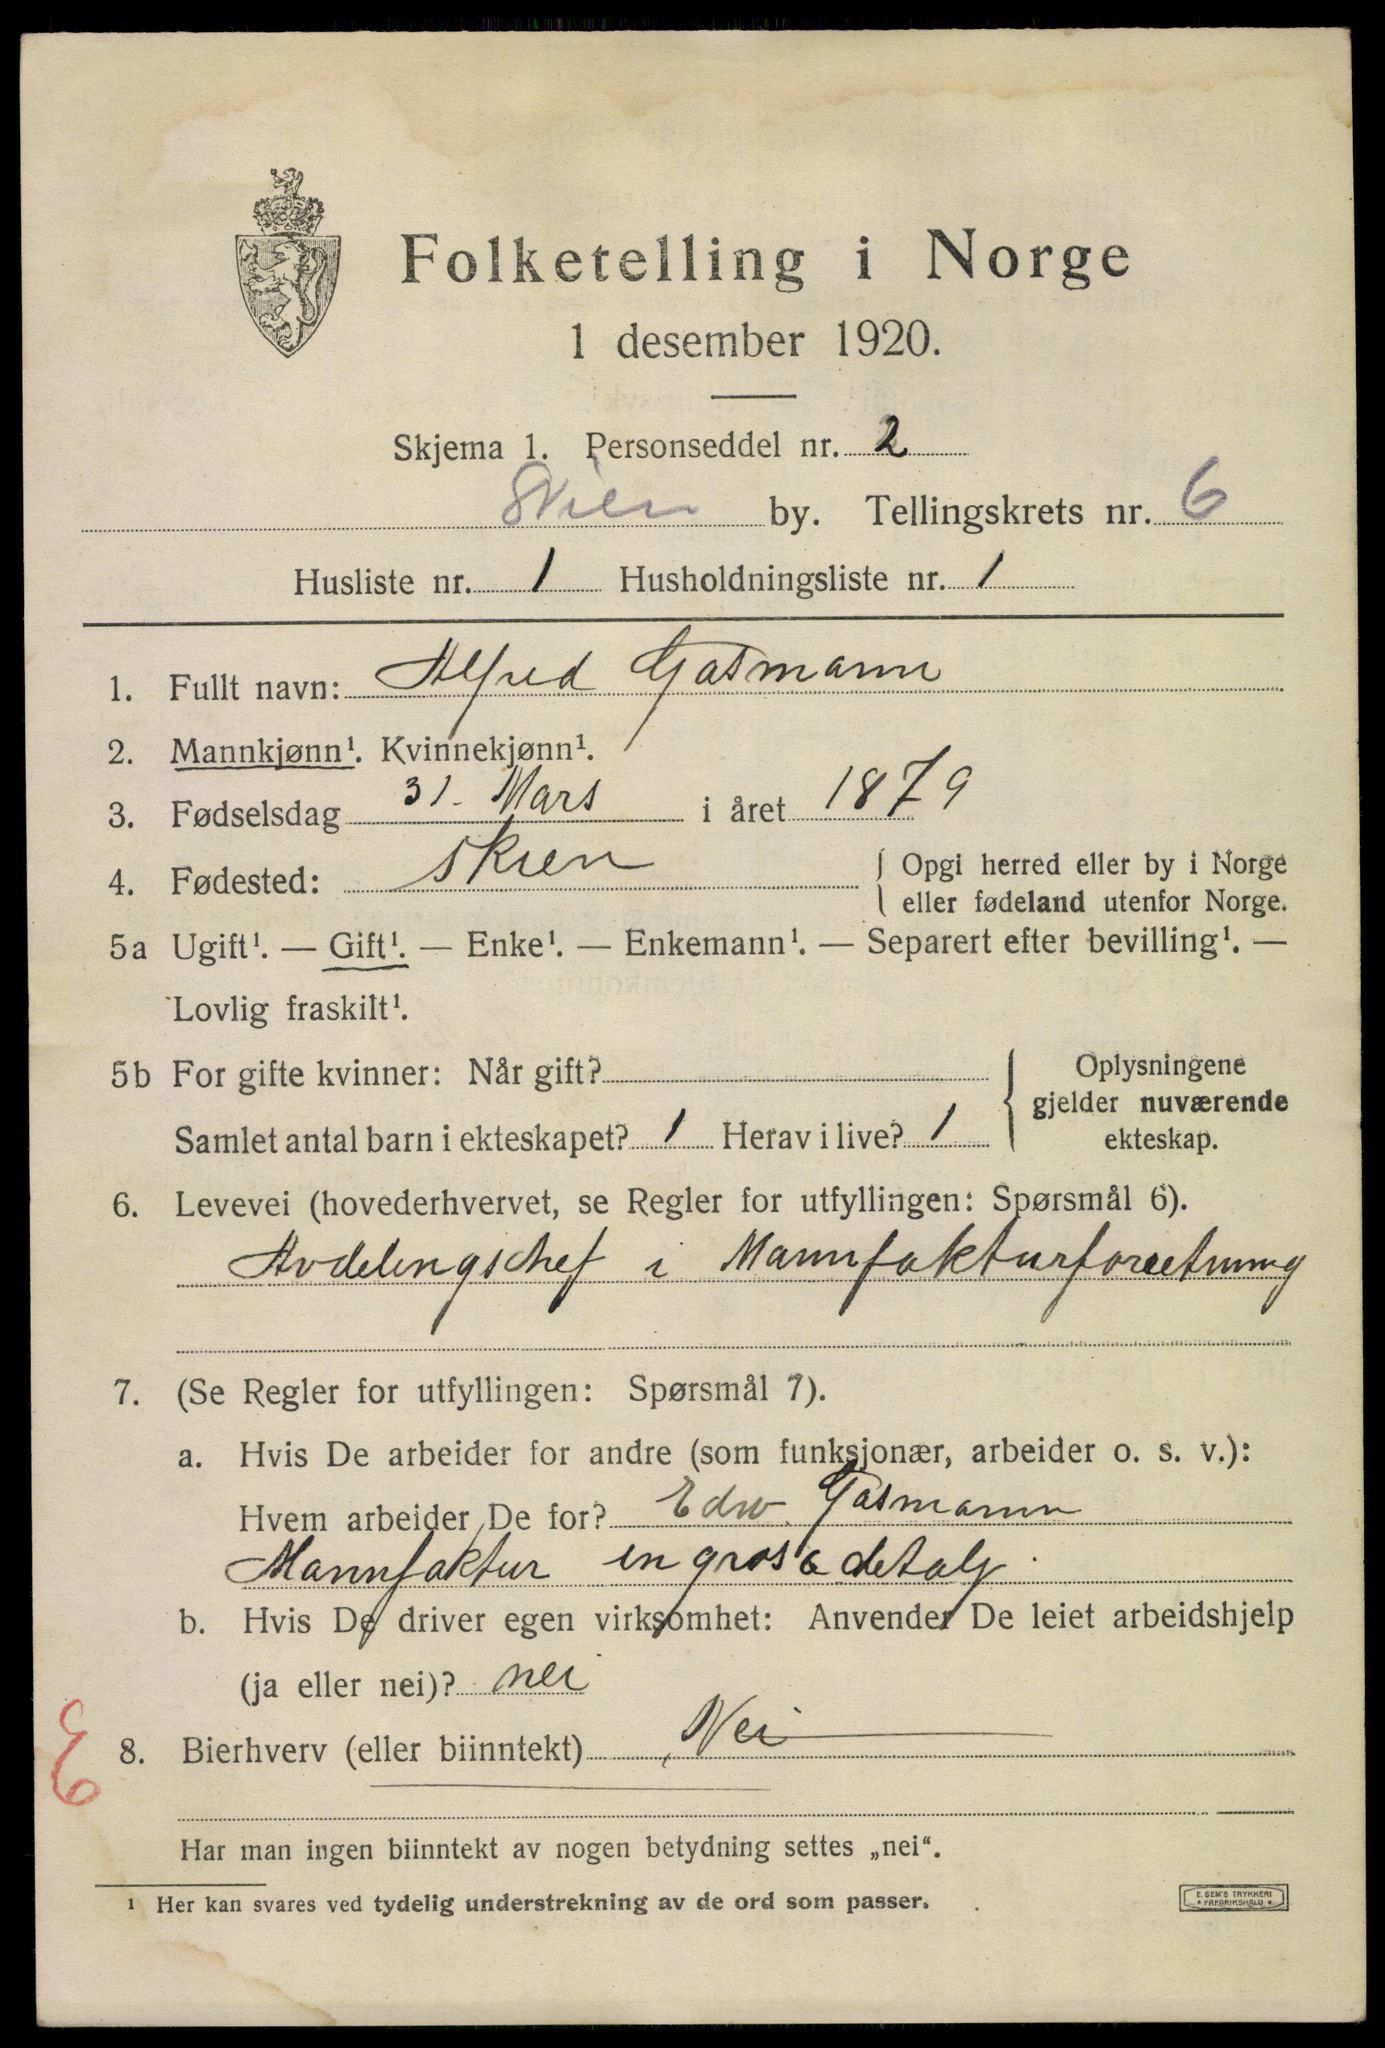 Folketelling i Norge
1 desember 1920.
Skjema 1. Personseddel nr. 2
Skien by. Tellingskrets nr. 6
Husliste nr. 1 Husholdningsliste nr. 1
1. Fullt navn: Alfred Gasmann
2. Mannkjønn¹. Kvinnekjønn¹.
3. Fødselsdag 31. Mars i året 1879
4. Fødested: Skien { Opgi herred eller by i Norge
eller fødeland utenfor Norge.
5a Ugift¹. — Gift¹. — Enke¹. — Enkemann¹. — Separert efter bevilling¹. —
Lovlig fraskilt¹.
5b For gifte kvinner: Når gift?
Samlet antal barn i ekteskapet? 1 Herav i live? 1
Oplysningene
gjelder nuværende
ekteskap.
6. Levevei (hovederhvervet, se Regler for utfyllingen: Spørsmål 6).
Avdelingschef i Manufakturforretning
7. (Se Regler for utfyllingen: Spørsmål 7).
a. Hvis De arbeider for andre (som funksjonær, arbeider o. s. v.):
Hvem arbeider De for? Edw. Gasmann
Manufaktur en gros & detalj.
b. Hvis De driver egen virksomhet: Anvender De leiet arbeidshjelp
(ja eller nei)? nei
8. Bierhverv (eller biinntekt) Nei
Har man ingen biinntekt av nogen betydning settes „nei“.
¹ Her kan svares ved tydelig understrekning av de ord som passer.
E. SEM'S TRYKKERI
FREDRIKSHALD